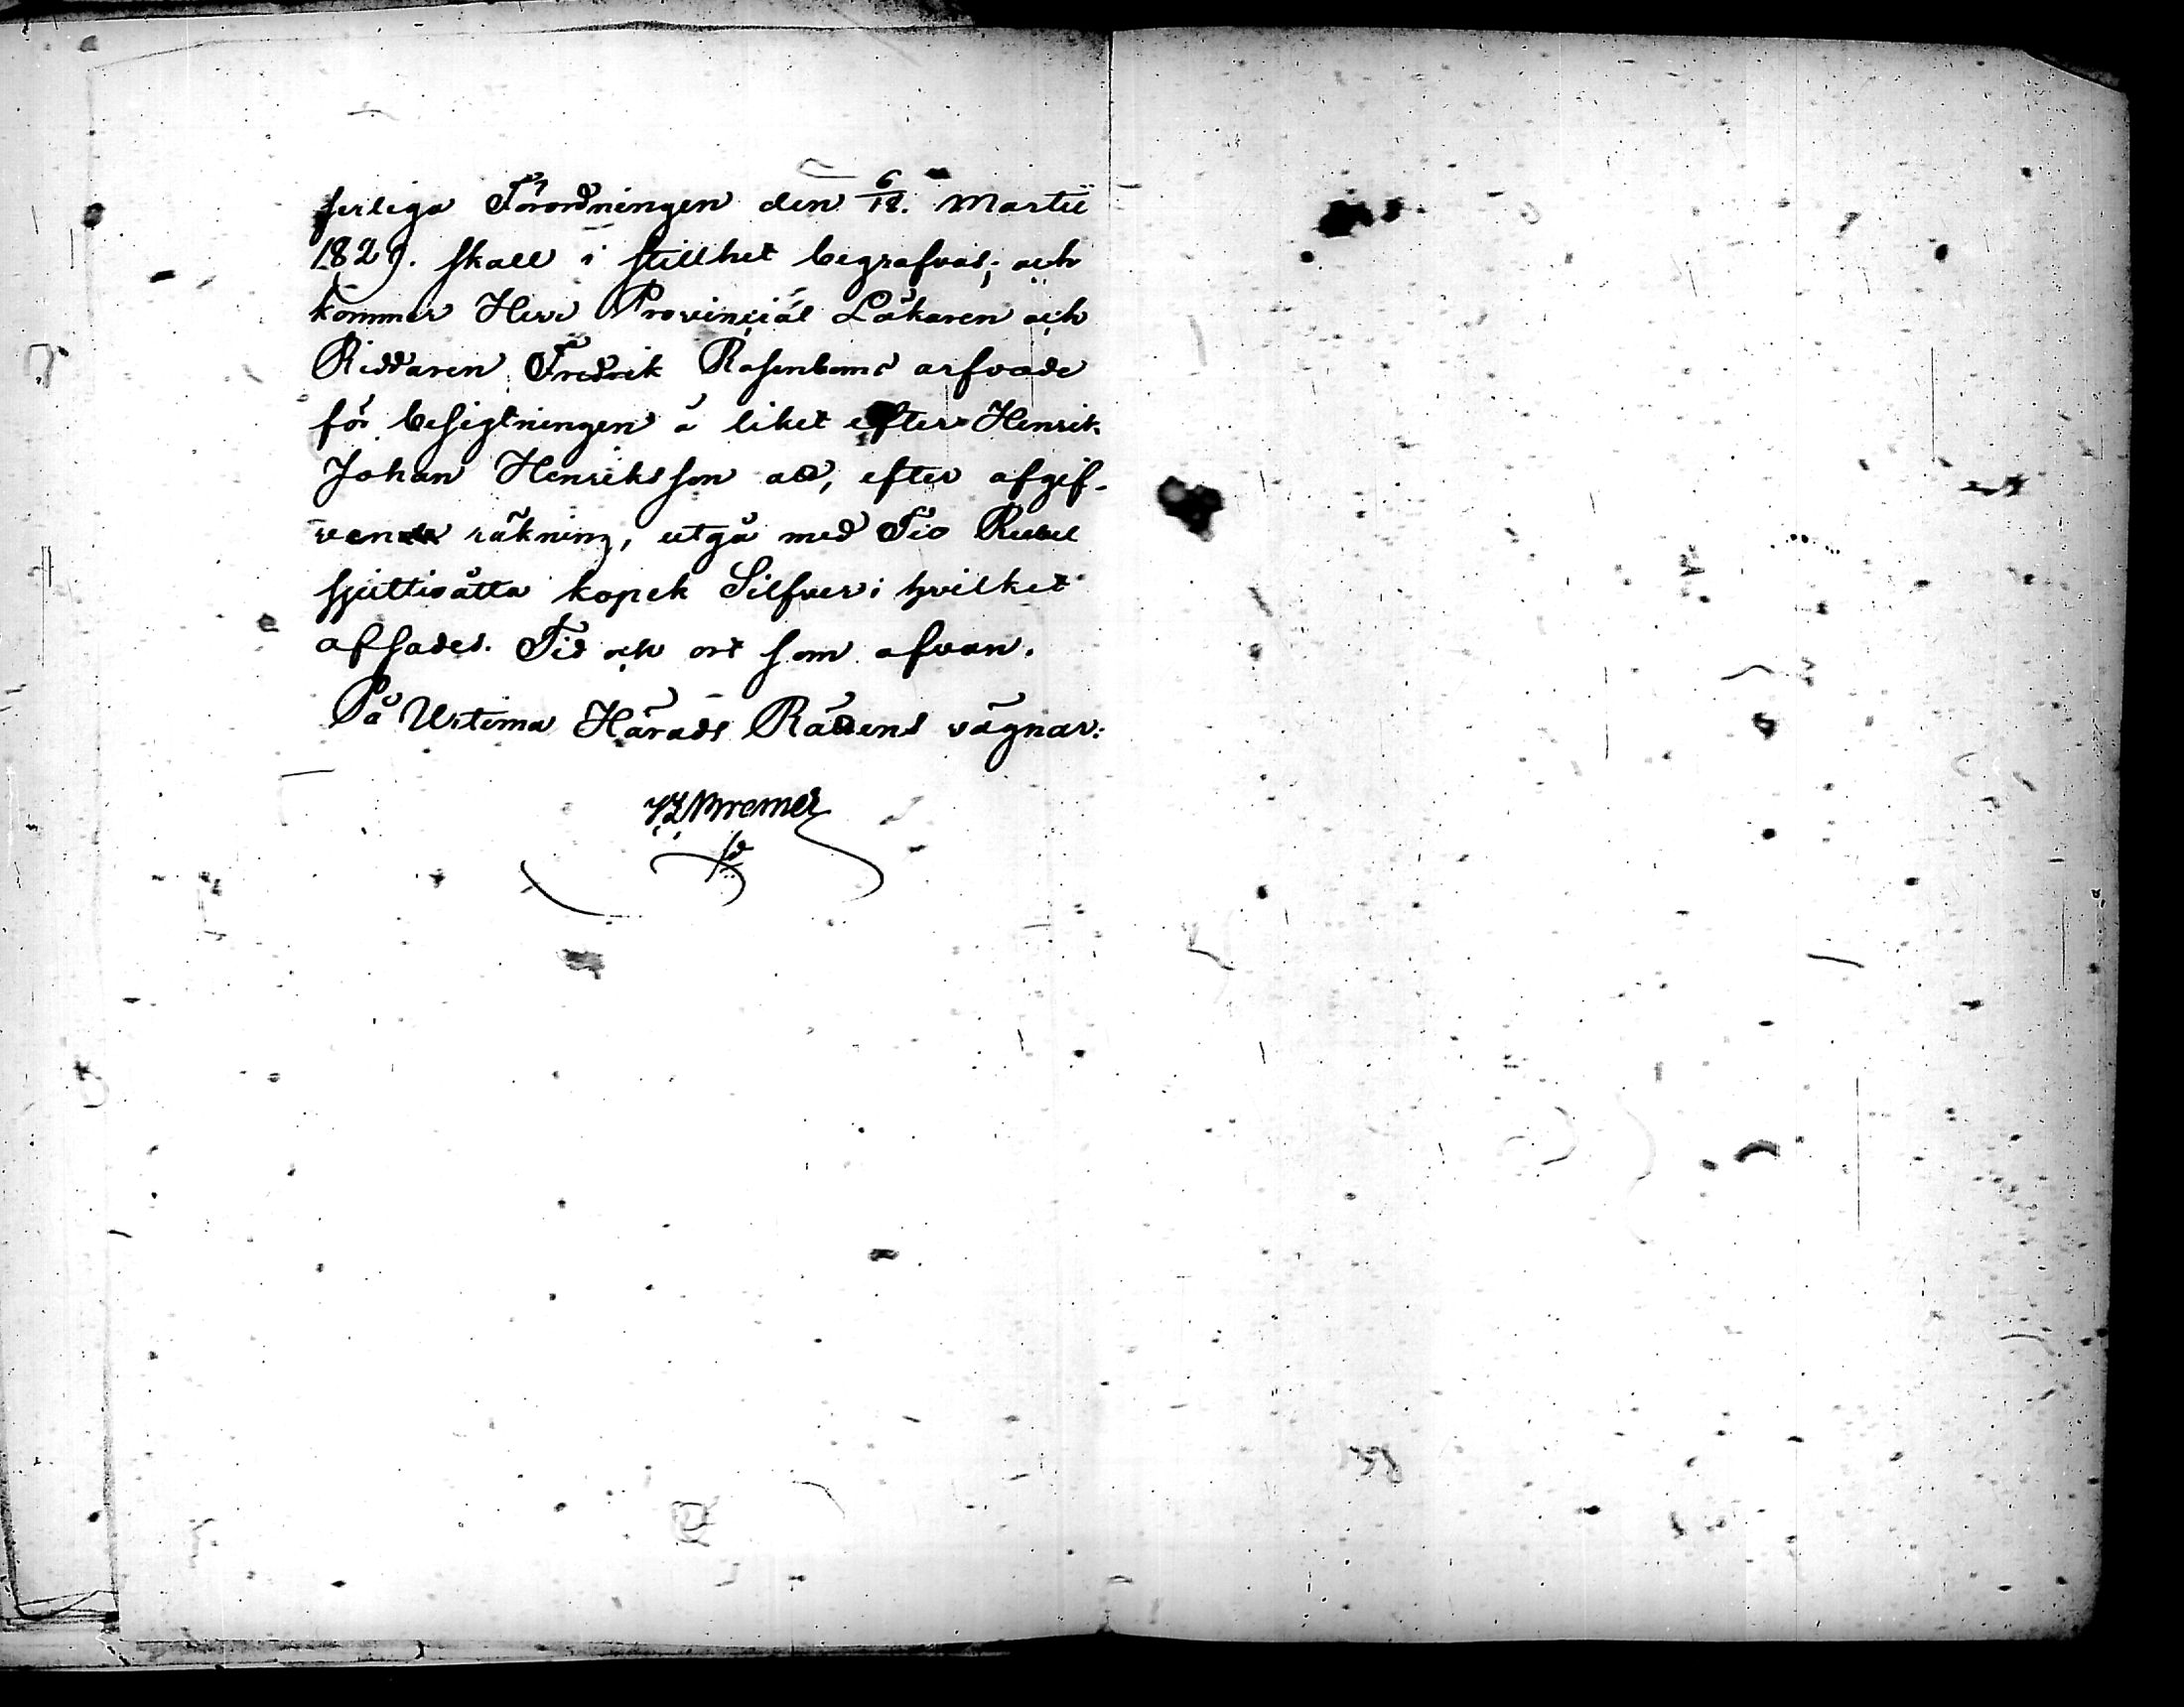 serliga Förordningen den 6/18. Martii
1829. skall i stillhet begrafvas; och
kommer Herr Provincial Läkaren och
Riddaren Fredrik Rosenboms arfvode
för besigtningen å liket efter Henrik
Johan Henriksson att, efter afgif-
ven räkning, utgå med Tio Rubel
sjuttioåtta kopek Silfver; hvilket
afsades. Tid och ort som ofvan.
På Urtima Härads Rättens vägnar:
Bremer